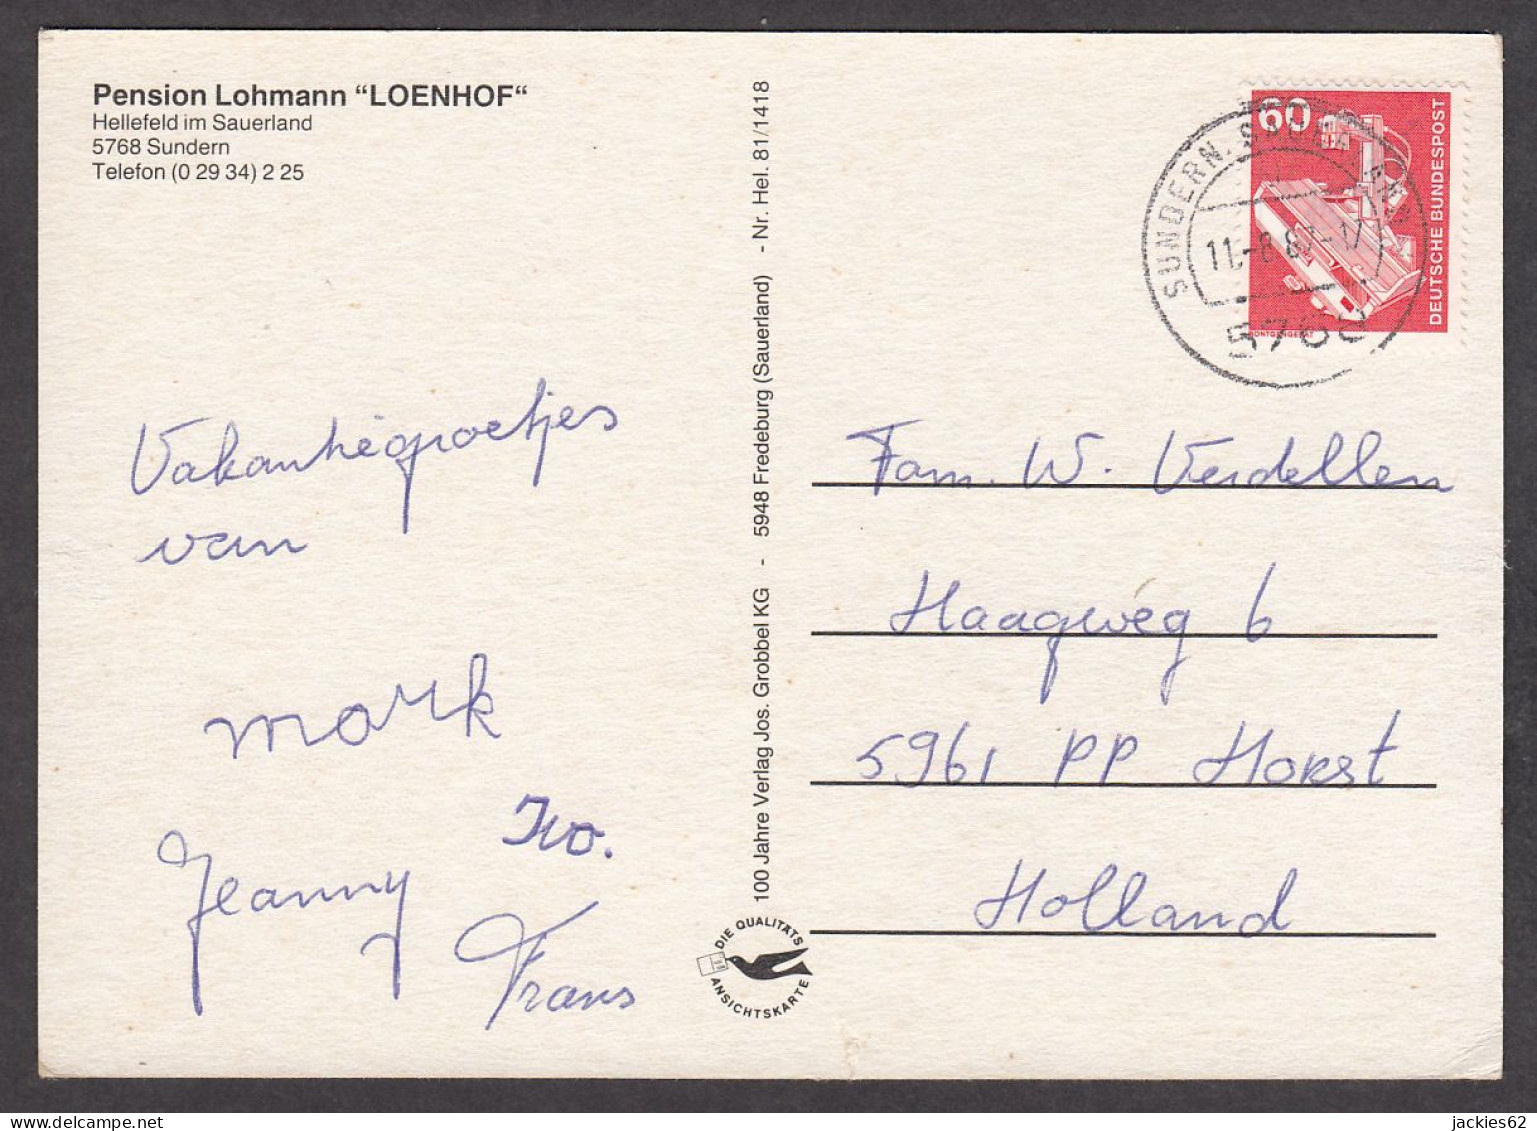 Pension Lohmann “LOENHOF“
Hellefeld im Sauerland
5768 Sundern
Telefon (0 29 34) 2 25
Vakantiegroetjes
van
mark
Ivo.
Jeanny
Frans
100 Jahre Verlag Jos. Grobbel KG - 5948 Fredeburg (Sauerland) - Nr. Hel. 81/1418
DIE QUALITÄTS
ANSICHTSKARTE
60
DEUTSCHE BUNDESPOST
RÖNTGENGERÄT
SUNDERN, SAUERLAND
5768
Fam. W. Verdellen
Haagweg 6
5961 PP Horst
Holland
jackies62